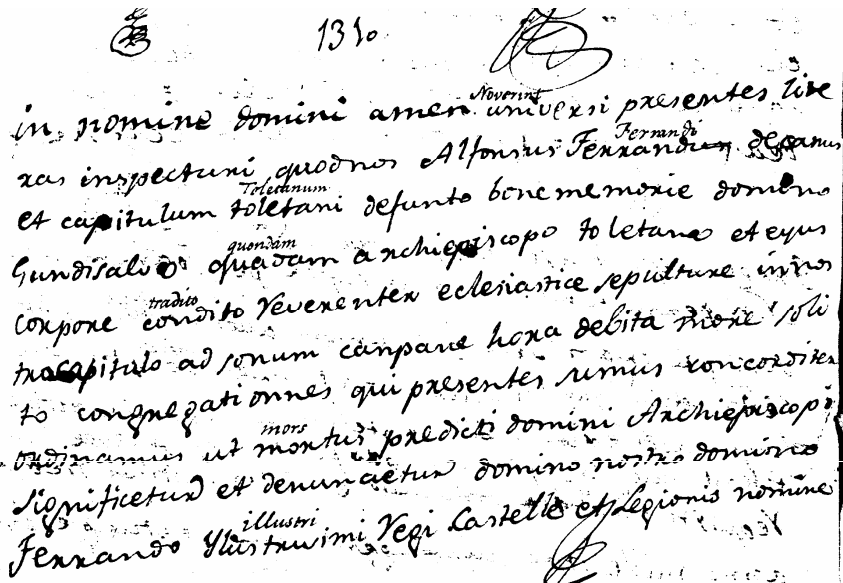 1310
in nomine domini amen Noverint universi presentes lite
ras inspecturi quod nos Alfonsus Ferrandus Ferrandi decanus
et capitulum toletani Toletanum defunto bone memorie domino
Gundisalvo quadam quondam archiepiscopo toletano et ejus
corpore condito tradito reverenter eclesiastice sepulture in nos
tro capitulo ad sonum canpane hora debita more soli
to congregationnes qui presentes sumus concorditer
ordinamus ut mortus mors predicti domini Archiepiscopi
significetur et denuncietur domino nostro domino
Ferrando Ylustrisimi illustri Regi Castelle et Legionis nomine